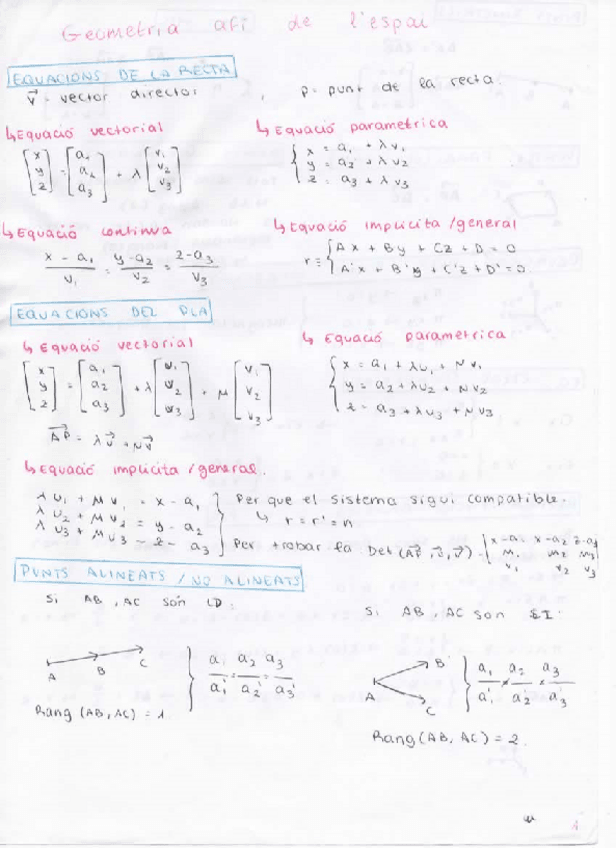 Geometria afí de l'espai
EQUACIONS DE LA RECTA
v⃗ = vector director , P = punt de la recta
↳ Equació vectorial
[x y z] = [a₁ a₂ a₃] + λ [v₁ v₂ v₃]
↳ Equació parametrica
{ x = a₁ + λ v₁
y = a₂ + λ v₂
z = a₃ + λ v₃
↳ Equació continua
(x - a₁)/v₁ = (y - a₂)/v₂ = (z - a₃)/v₃
↳ Equació implícita /general
r ≡ { Ax + By + Cz + D = 0
A'x + B'y + C'z + D' = 0
EQUACIONS DEL PLA
↳ Equació vectorial
[x y z] = [a₁ a₂ a₃] + λ [u₁ u₂ u₃] + μ [v₁ v₂ v₃]
AP⃗ = λu⃗ + μv⃗
↳ Equació parametrica
{ x = a₁ + λu₁ + μv₁
y = a₂ + λu₂ + μv₂
z = a₃ + λu₃ + μv₃
↳ Equació implícita /general.
λ u₁ + μ v₁ = x - a₁
λ u₂ + μ v₂ = y - a₂
λ u₃ + μ v₃ = z - a₃
Per que el sistema sigui compatible.
↳ r = r' = n
Per trobar fa Det (AP⃗, u⃗, v⃗) = | x-a₁ x-a₂ z-a₃
u₁ u₂ u₃
v₁ v₂ v₃ |
PUNTS ALINEATS / NO ALINEATS
Si AB, AC són LD:
A B C } a₁/a₁' = a₂/a₂' = a₃/a₃'
Rang (AB, AC) = 1.
Si AB, AC son LI:
A B C { a₁/a₁' ≠ a₂/a₂' ≠ a₃/a₃'
Rang (AB, AC) = 2.